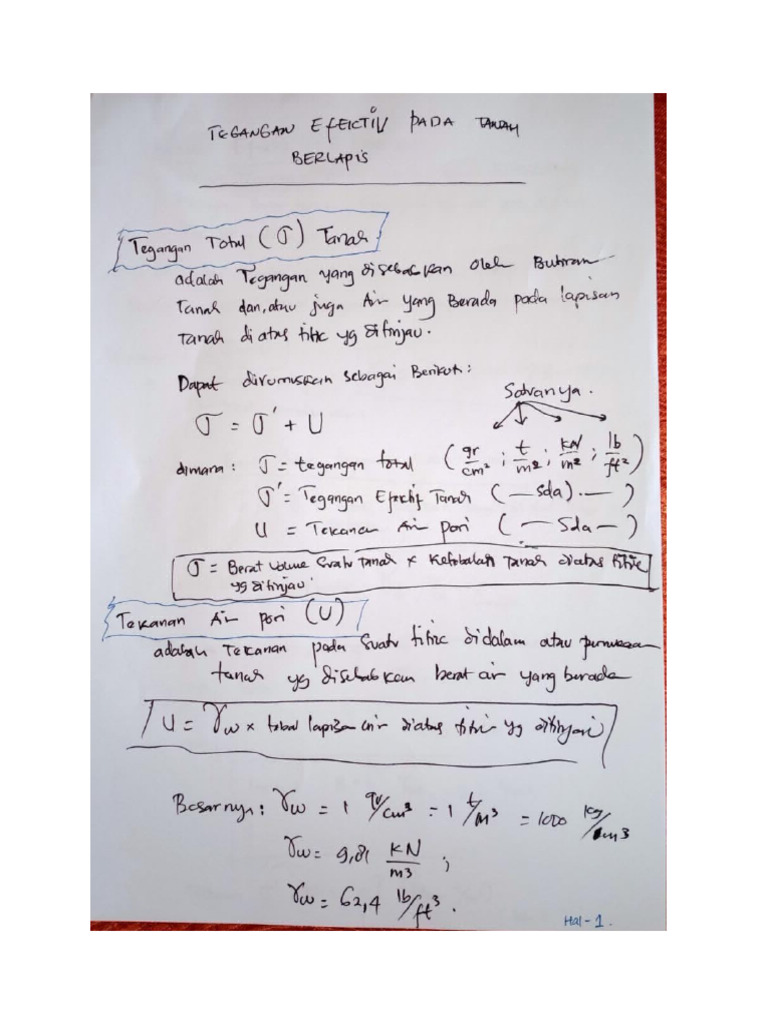 TEGANGAN EFEKTIV PADA TANAH
BERLAPIS
Tegangan Total (σ) Tanah
adalah Tegangan yang disebabkan oleh Butiran
Tanah dan, atau juga Air yang Berada pada lapisan
Tanah diatas titik yg ditinjau.
Dapat dirumuskan sebagai Berikut:
Satuanya.
σ = σ' + U
dimana: σ = tegangan total (gr/cm²; t/m²; KN/m²; lb/ft²)
σ' = Tegangan Efektif Tanah (—sda).—)
U = Tekanan Air pori (—Sda—)
σ = Berat Volume Suatu Tanah x Ketebalan Tanah diatas titik
yg ditinjau.
Tekanan Air pori (U)
adalah Tekanan pada Suatu titik didalam atau permukaan
tanah yg disebabkan berat air yang berada
U = γw x tebal lapisan air diatas titik yg ditinjau
Besarnya: γw = 1 gr/cm³ = 1 t/m³ = 1000 kg/m3
γw = 9,81 KN/m3;
γw = 62,4 lb/ft³.
Hal-1.